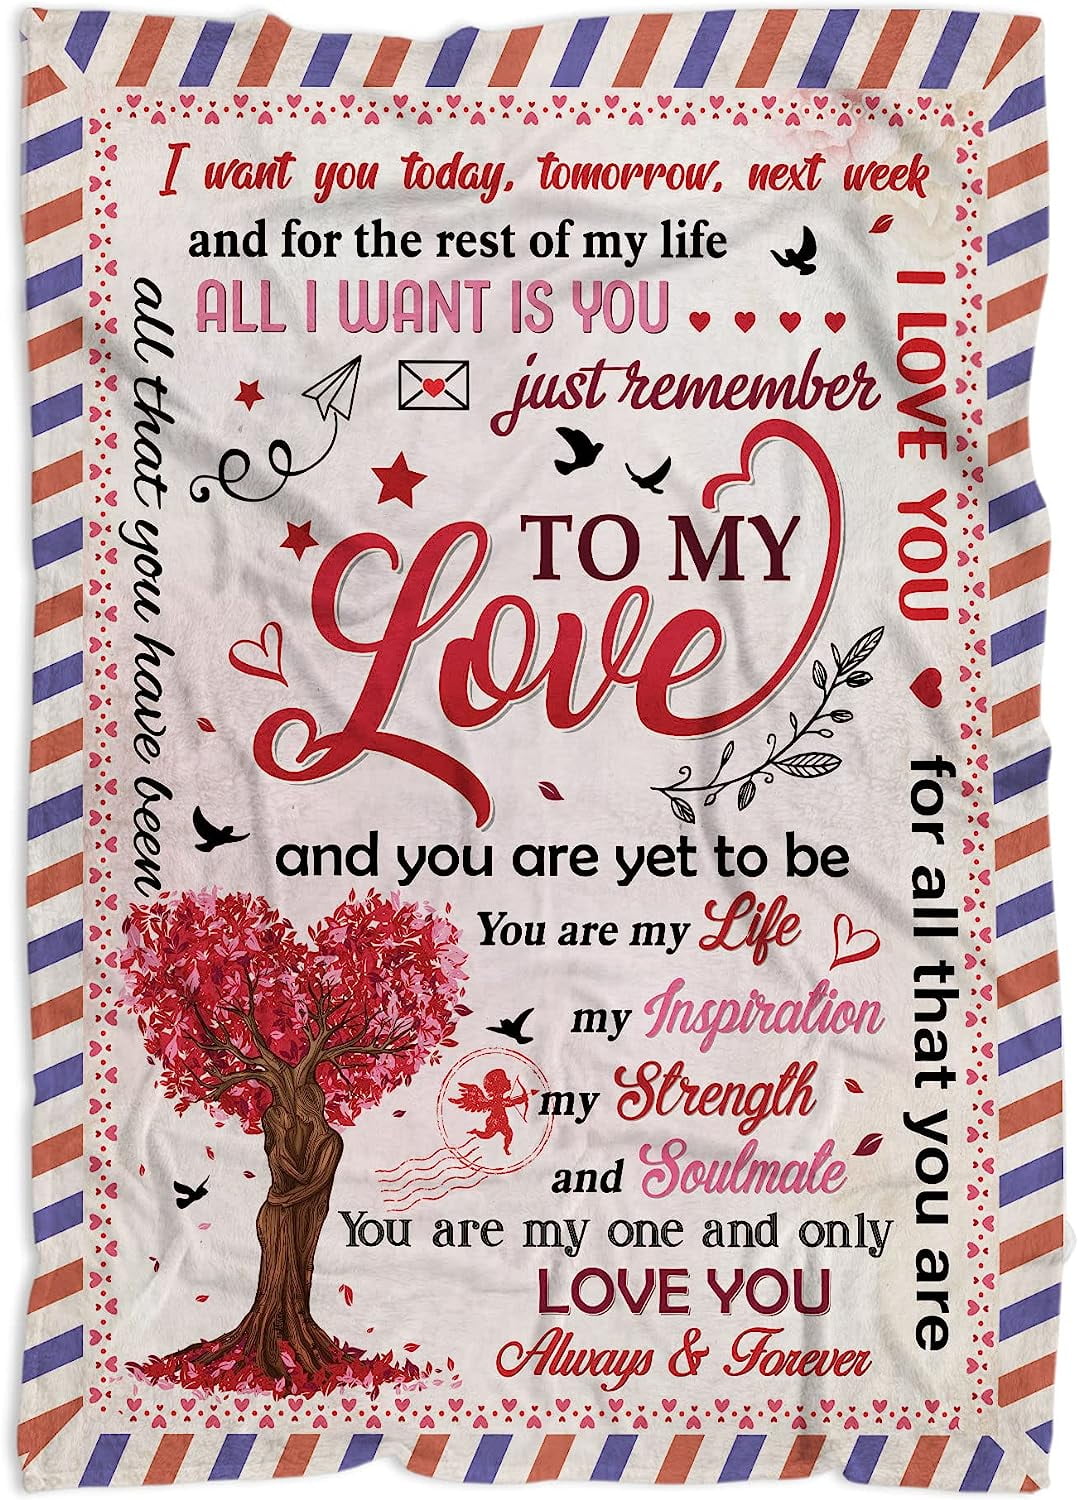 I want you today, tomorrow, next week
and for the rest of my life
ALL I WANT IS YOU
just remember
I LOVE YOU
for all that you are
all that you have been
TO MY
Love
and you are yet to be
You are my Life
my Inspiration
my Strength
and Soulmate
You are my one and only
LOVE YOU
Always & Forever